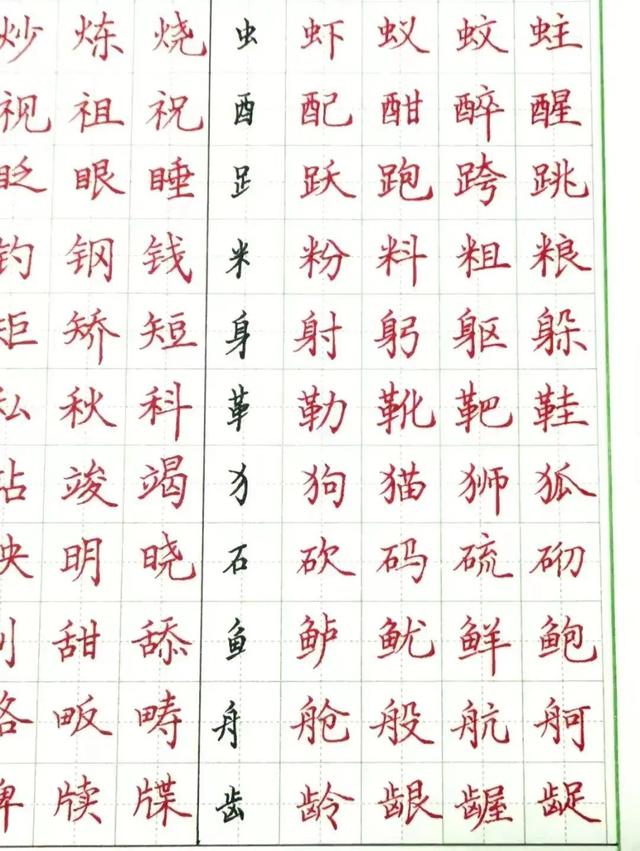 炒 炼 烧 虫 虾 蚁 蚊 蛀
视 祖 祝 酉 配 酣 醉 醒
眨 眼 睡 ⻊ 跃 跑 跨 跳
钓 钢 钱 米 粉 料 粗 粮
矩 矫 短 身 射 躬 躯 躲
私 秋 科 革 勒 靴 靶 鞋
站 竣 竭 犭 狗 猫 狮 狐
映 明 晓 石 砍 码 硫 砌
甜 舔 鱼 鲈 鱿 鲜 鲍
略 畈 畴 舟 舱 般 航 舸
牌 牍 牒 齿 龄 龈 龌 龊